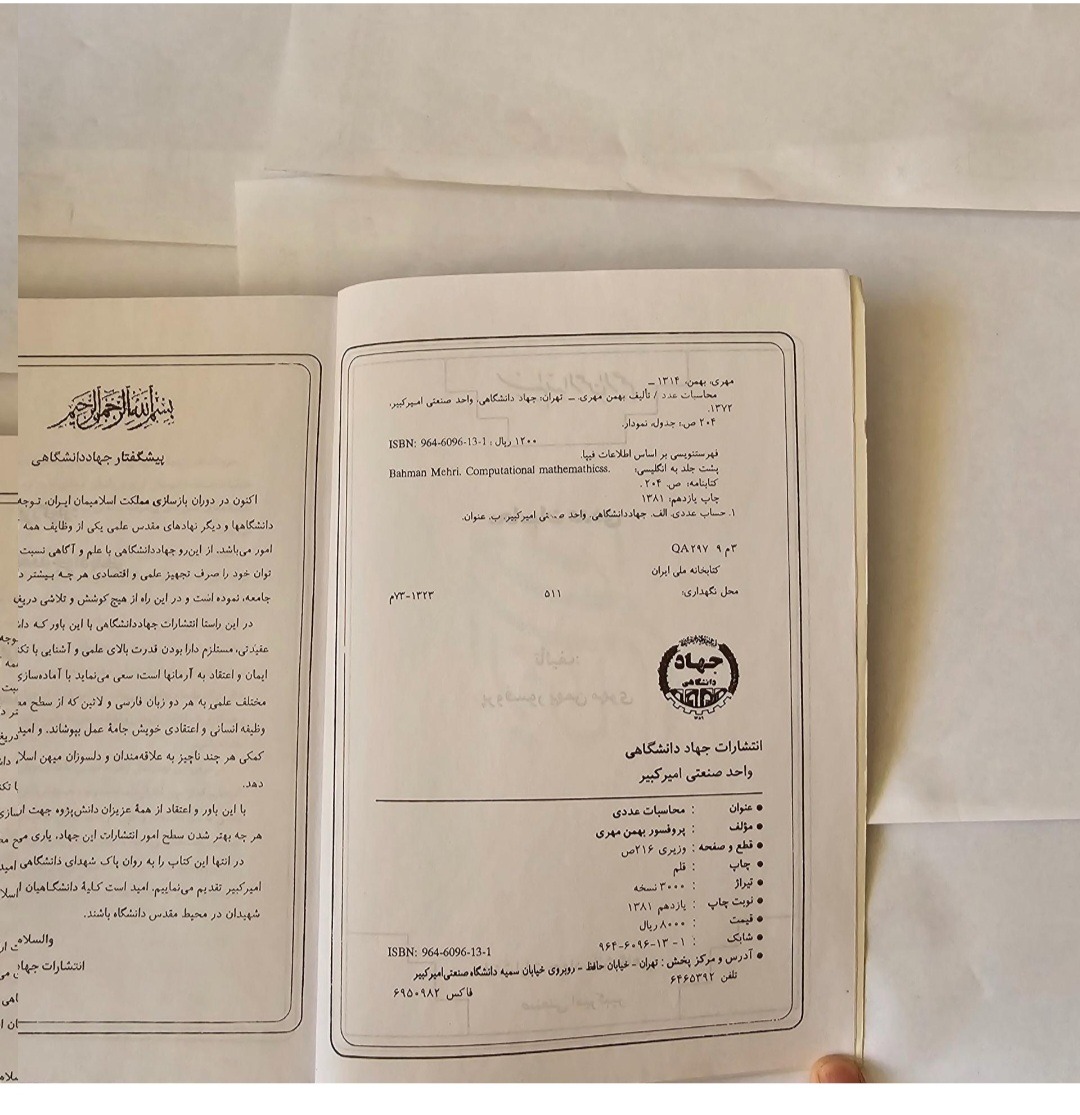 مهری، بهمن، ۱۳۱۴ –
محاسبات عدد / تألیف بهمن مهری. – تهران: جهاد دانشگاهی، واحد صنعتی امیرکبیر،
۱۳۷۲.
۲۰۴ ص.: جدول، نمودار.
ISBN: 964-6096-13-1 : ۱۲۰۰ ریال
فهرستنویسی بر اساس اطلاعات فیپا.
پشت جلد به انگلیسی: Bahman Mehri. Computational mathemathicss.
کتابنامه: ص. ۲۰۴ .
چاپ یازدهم: ۱۳۸۱
۱. حساب عددی. الف. جهاددانشگاهی. واحد صنعتی امیرکبیر. ب. عنوان.
۳م ۹ QA ۲۹۷
کتابخانه ملی ایران
محل نگهداری: ۵۱۱ ۱۳۲۳-۷۳م
جهاد
دانشگاهی
انتشارات جهاد دانشگاهی
واحد صنعتی امیرکبیر
● عنوان : محاسبات عددی
● مؤلف : پروفسور بهمن مهری
● قطع و صفحه : وزیری ۲۱۶ص
● چاپ : قلم
● تیراژ : ۳۰۰۰ نسخه
● نوبت چاپ : یازدهم ۱۳۸۱
● قیمت : ۸۰۰۰ ریال
● شابک : ۱- ۱۳-۶۰۹۶-۹۶۴ ISBN: 964-6096-13-1
● آدرس و مرکز پخش : تهران - خیابان حافظ - روبروی خیابان سمیه دانشگاه صنعتی امیرکبیر
تلفن ۶۴۶۵۳۹۲ فاکس ۶۹۵۰۹۸۲
بسم الله الرحمن الرحیم
پیشگفتار جهاددانشگاهی
اکنون در دوران بازسازی مملکت اسلامیمان ایران، توجه
دانشگاهها و دیگر نهادهای مقدس علمی یکی از وظایف همه
امور می‌باشد. از این‌رو جهاددانشگاهی با علم و آگاهی نسبت
توان خود را صرف تجهیز علمی و اقتصادی هر چه بیشتر
جامعه، نموده است و در این راه از هیچ کوشش و تلاشی
در این راستا انتشارات جهاددانشگاهی با این باور که
عقیدتی، مستلزم دارا بودن قدرت بالای علمی و آشنایی با
ایمان و اعتقاد به آرمانها است؛ سعی می‌نماید با آماده‌سازی
مختلف علمی به هر دو زبان فارسی و لاتین که از سطح
وظیفه انسانی و اعتقادی خویش جامهٔ عمل بپوشاند. و
کمکی هر چند ناچیز به علاقه‌مندان و دلسوزان میهن
دهد.
با این باور و اعتقاد از همهٔ عزیزان دانش‌پژوه جهت
هر چه بهتر شدن سطح امور انتشارات این جهاد، یاری
در انتها این کتاب را به روان پاک شهدای دانشگاهی
امیرکبیر تقدیم می‌نماییم. امید است کلیهٔ دانشگاهیان
شهیدان در محیط مقدس دانشگاه باشند.
والسلام
انتشارات